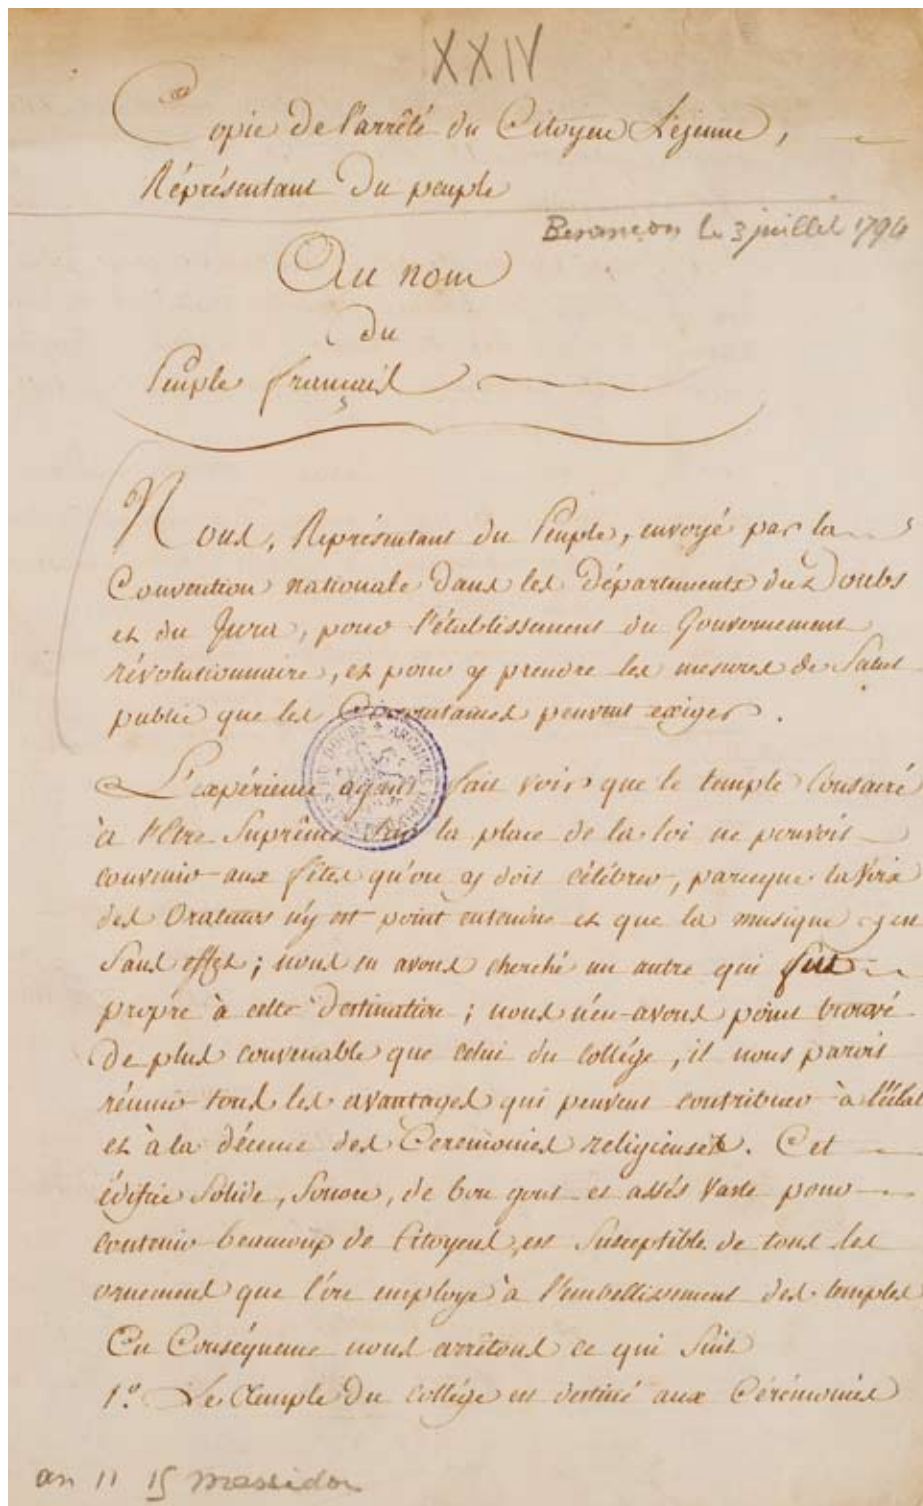 XXIV
Copie de l'arrêté du Citoyen Lejeune,
Réprésentant du peuple
Besançon le 3 juillet 1794
Au nom
du
Peuple français
Nous, Représentant du Peuple, envoyé par la
Convention nationale dans les départements du Doubs
et du Jura, pour l'établissement du Gouvernement
révolutionnaire, et pour y prendre les mesures de Salut
public que les Circonstances peuvent exiger.
L'expérience ayant fait voir que le temple Consacré
à l'Etre Suprême sur la place de la loi ne pouvoit
convenir aux fêtes qu'on y doit célébrer, parceque la Voix
des Orateurs n'y est point entendue et que la musique y est
Sans effet; nous en avons cherché un autre qui fut
propre à cette destination; nous n'en avons point trouvé
De plus convenable que celui du collége, il nous paroit
réunir tous les avantages qui peuvent contribuer à l'éclat
et à la décence des Ceremonies religieuses. Cet
édifice Solide, Sonore, de bon gout et assés Vaste pour
contenir beaucoup de Citoyens, est Susceptible de tous les
ornement que l'on employe à l'embellissement des temples
En Conséquence nous arrêtons ce qui Suit
1.º Le Temple du collége est destiné aux Cérémonies
an 11 15 messidor